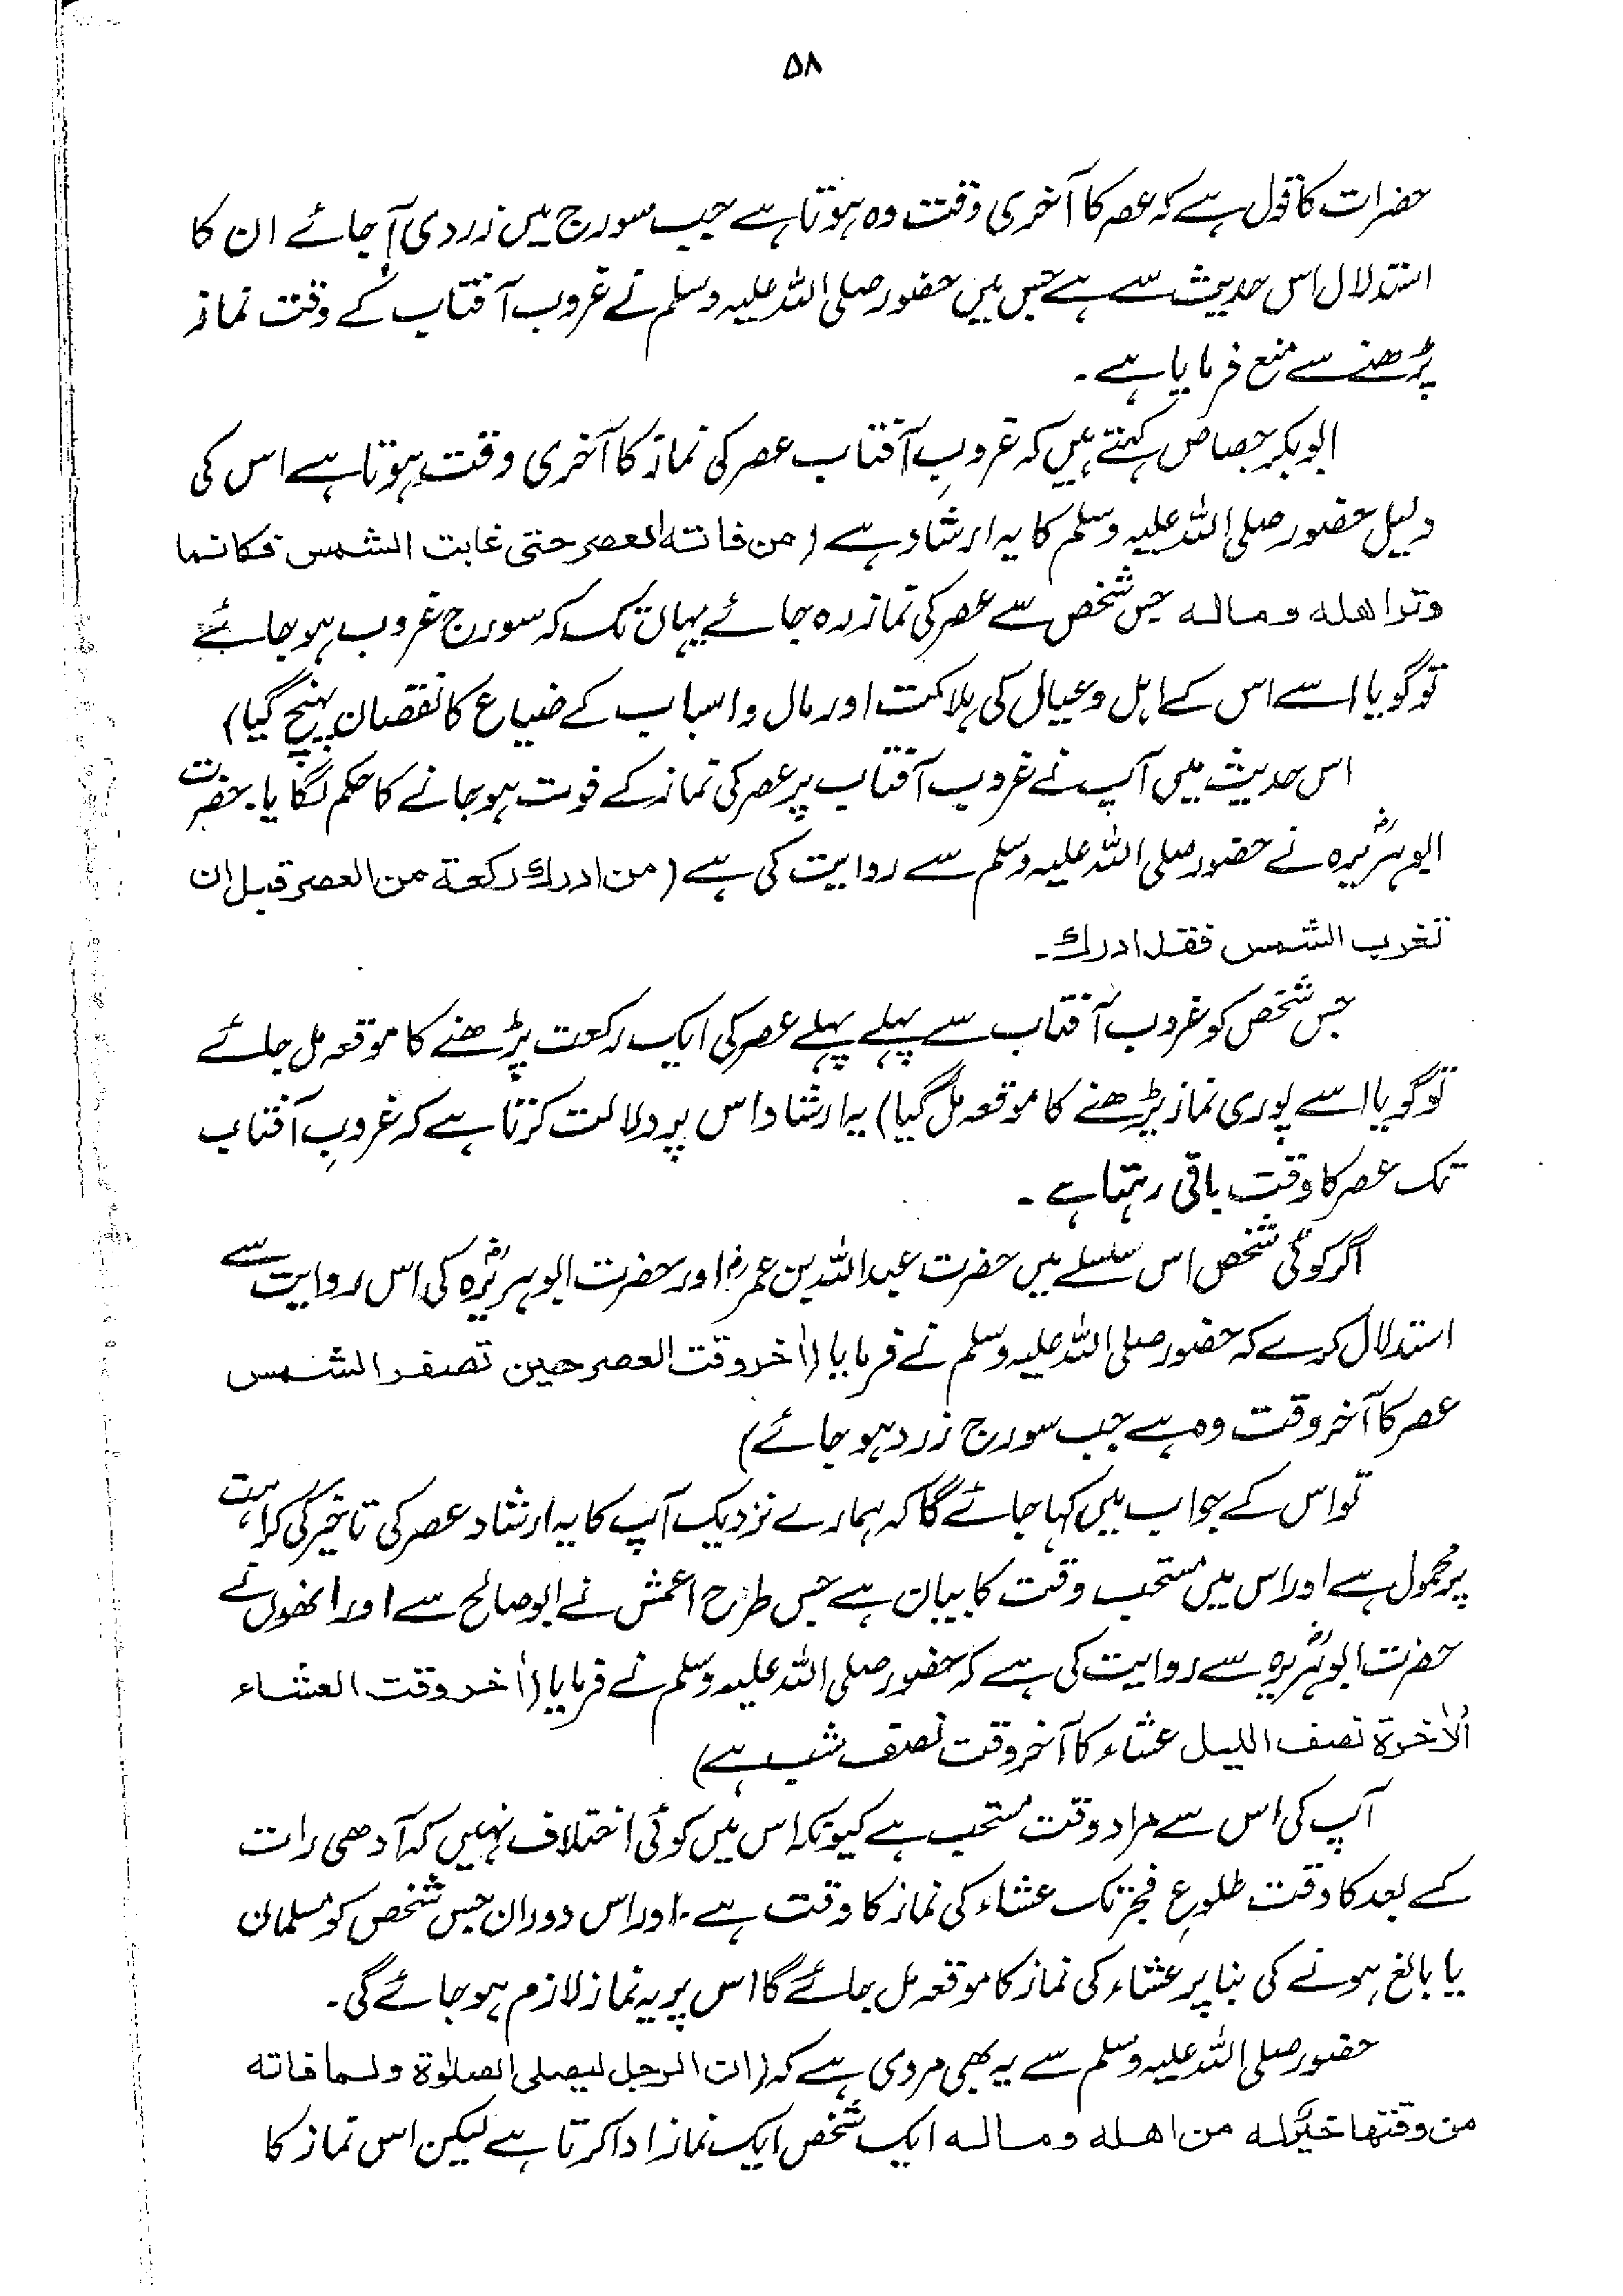 ۵۸
حضرات کا قول ہے کہ عصر کا آخری وقت وہ ہوتا ہے جب سورج میں زردی آ جائے ان کا
استدلال اس حدیث سے ہے جس میں حضور صلی اللہ علیہ وسلم نے غروب آفتاب کے وقت نماز
پڑھنے سے منع فرمایا ہے۔
ابوبکر جصاص کہتے ہیں کہ غروبِ آفتاب عصر کی نماز کا آخری وقت ہوتا ہے اس کی
دلیل حضور صلی اللہ علیہ وسلم کا یہ ارشاد ہے (من فاتہ العصر حتی غابت الشمس فکانما
وتر اھلہ و مالہ جس شخص سے عصر کی نماز رہ جائے یہاں تک کہ سورج غروب ہو جائے
تو گویا اسے اس کے اہل و عیال کی ہلاکت اور مال و اسباب کے ضیاع کا نقصان پہنچ گیا)
اس حدیث میں آپ نے غروب آفتاب پر عصر کی نماز کے فوت ہو جانے کا حکم لگایا۔ حضرت
ابوہریرہؓ نے حضور صلی اللہ علیہ وسلم سے روایت کی ہے (من ادرك رکعة من العصر قبل ان
تغرب الشمس فقد ادرك۔
جس شخص کو غروب آفتاب سے پہلے پہلے عصر کی ایک رکعت پڑھنے کا موقعہ مل جائے
تو گویا اسے پوری نماز پڑھنے کا موقعہ مل گیا) یہ ارشاد اس پر دلالت کرتا ہے کہ غروبِ آفتاب
تک عصر کا وقت باقی رہتا ہے۔
اگر کوئی شخص اس سلسلے میں حضرت عبداللہ بن عمرؓ اور حضرت ابوہریرہؓ کی اس روایت سے
استدلال کرے کہ حضور صلی اللہ علیہ وسلم نے فرمایا (اٰخر وقت العصر حین تصفر الشمس
عصر کا آخر وقت وہ ہے جب سورج زرد ہو جائے)
تو اس کے جواب میں کہا جائے گا کہ ہمارے نزدیک آپ کا یہ ارشاد عصر کی تاخیر کی کراہت
پر محمول ہے اور اس میں مستحب وقت کا بیان ہے جس طرح اعمش نے ابوصالح سے اور انھوں نے
حضرت ابوہریرہؓ سے روایت کی ہے کہ حضور صلی اللہ علیہ وسلم نے فرمایا (اٰخر وقت العشاء
الاٰخرة نصف اللیل عشاء کا آخر وقت نصف شب ہے)
آپ کی اس سے مراد وقت مستحب ہے کیونکہ اس میں کوئی اختلاف نہیں کہ آدھی رات
کے بعد کا وقت طلوعِ فجر تک عشاء کی نماز کا وقت ہے۔ اور اس دوران جس شخص کو مسلمان
یا بالغ ہونے کی بنا پر عشاء کی نماز کا موقعہ مل جائے گا اس پر یہ نماز لازم ہو جائے گی۔
حضور صلی اللہ علیہ وسلم سے یہ بھی مروی ہے کہ (ان الرجل لیصلی الصلوٰة و لما فاتہ
من وقتھا خیرلہ من اھلہ و مالہ ایک شخص ایک نماز ادا کرتا ہے لیکن اس نماز کا